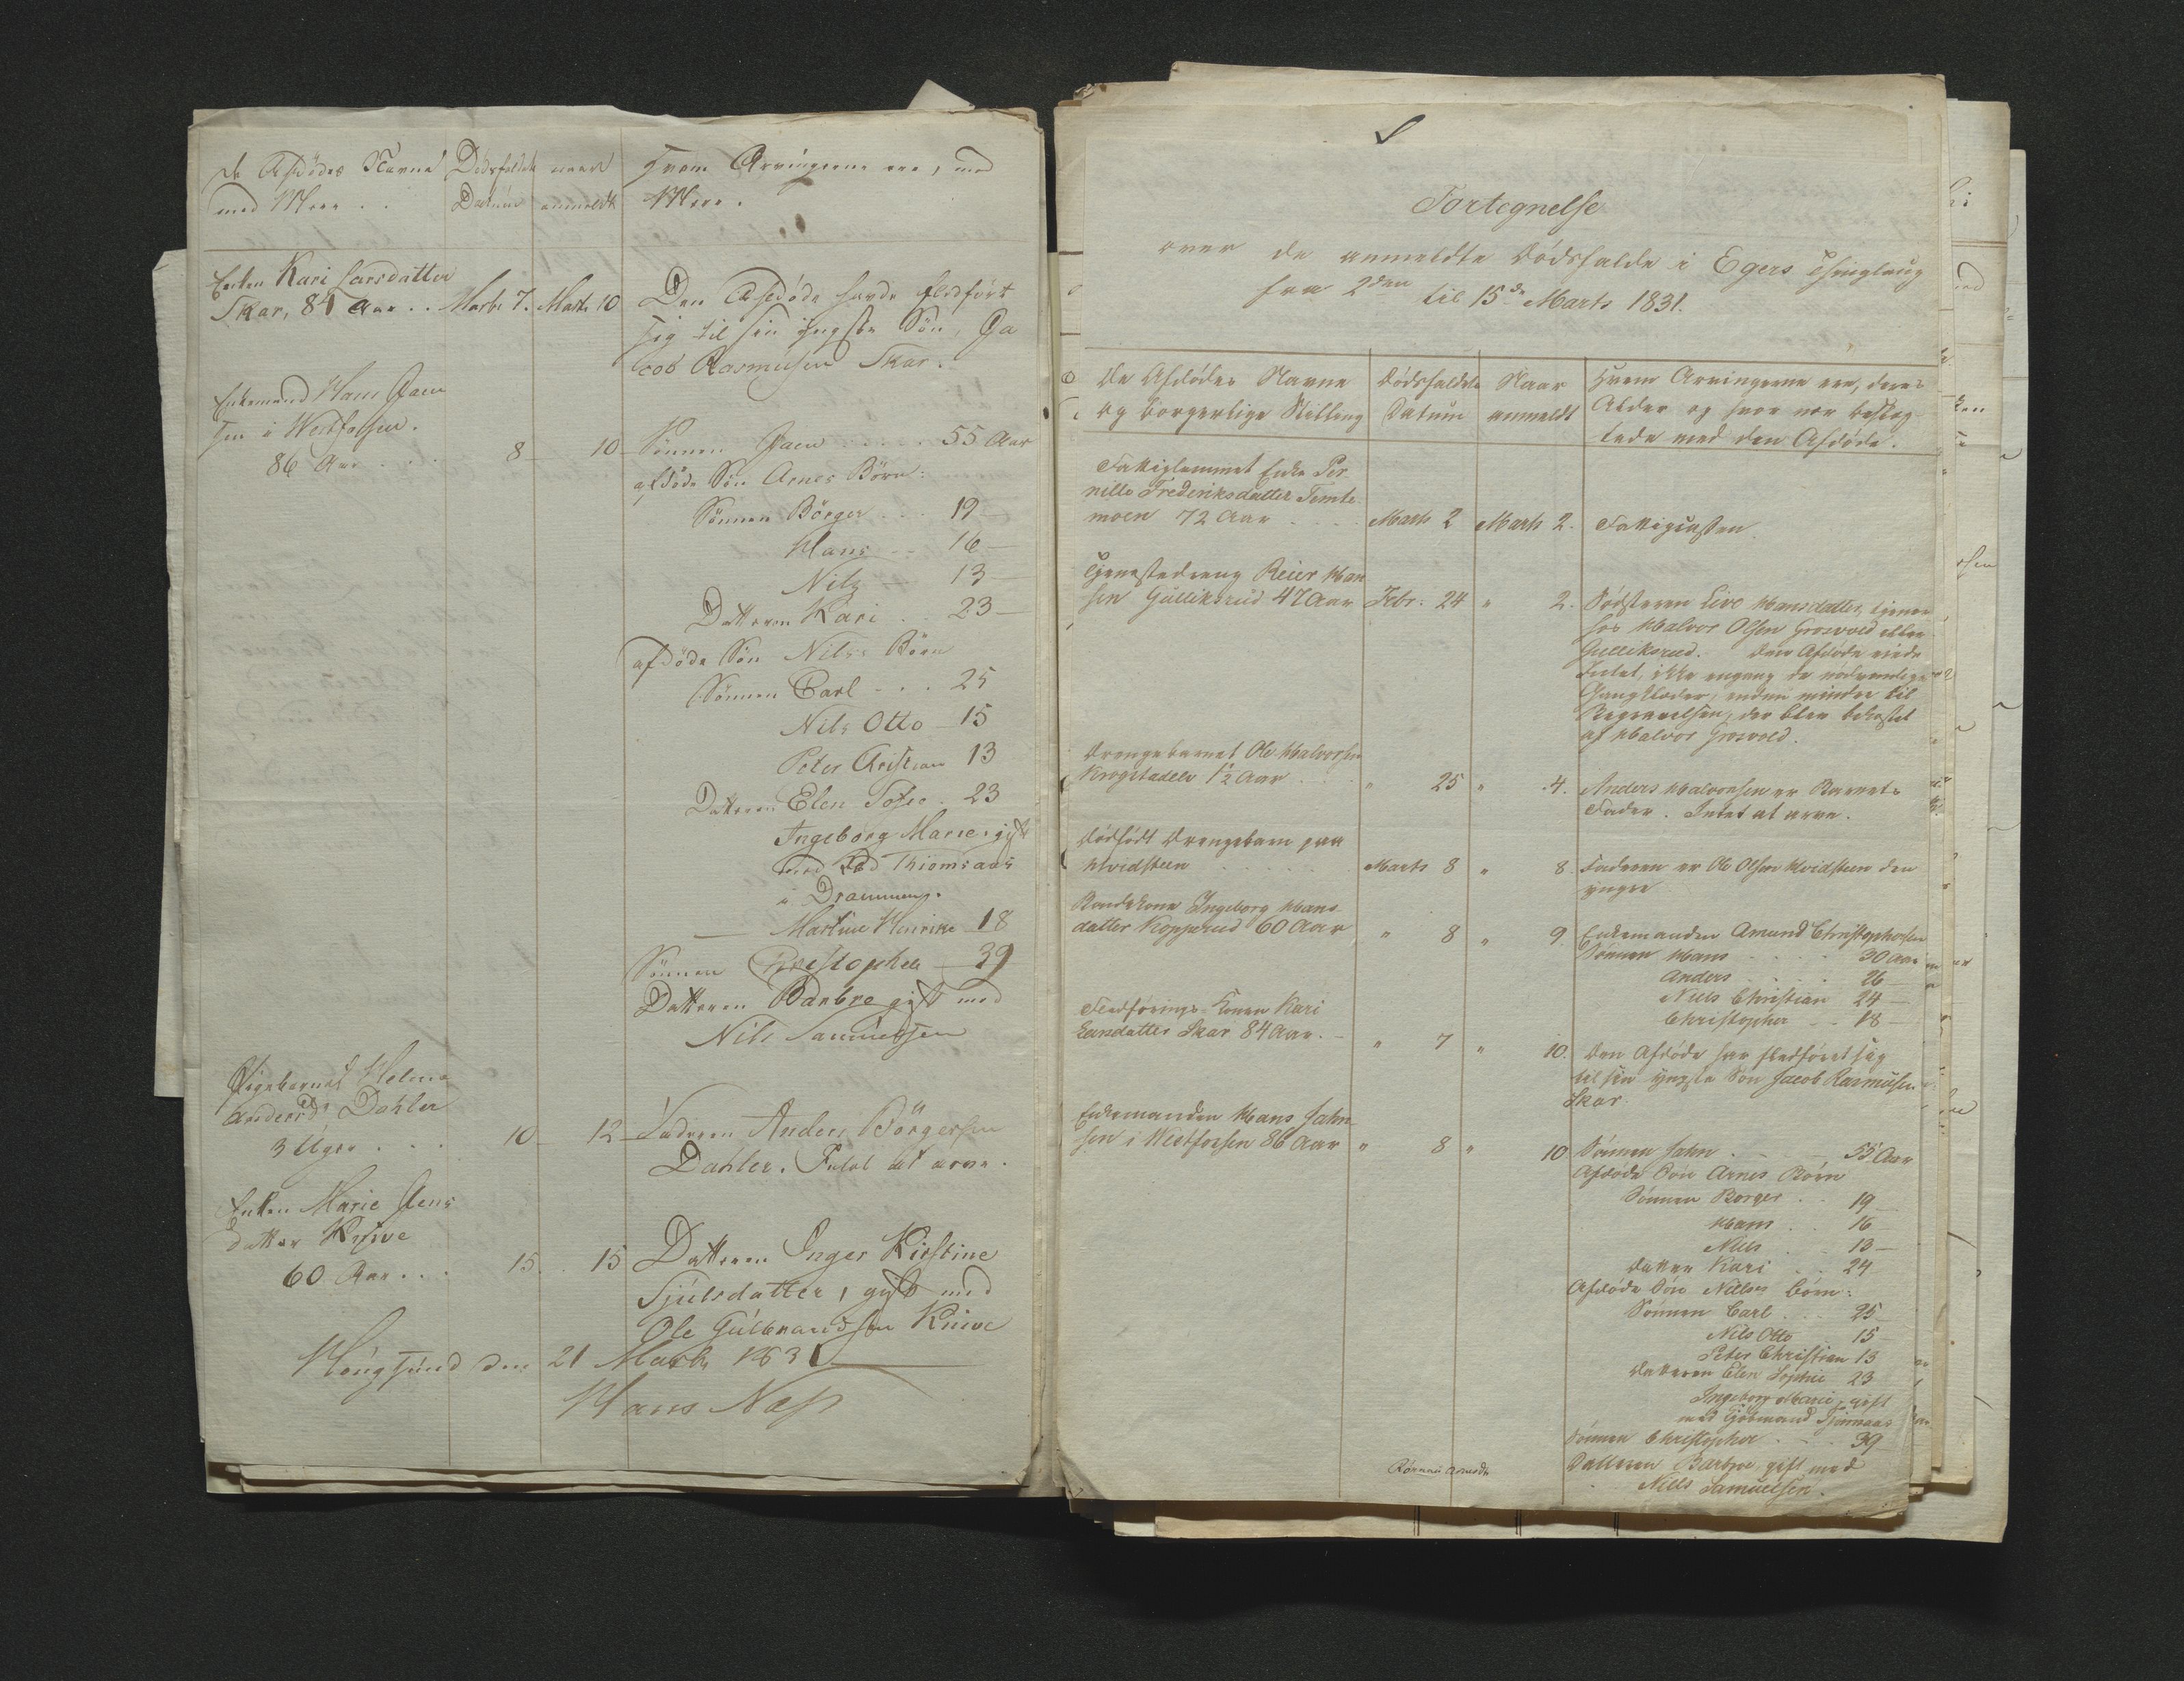 De Afdödes Navne
med Mere . .
Dødsfaldets
Datum
naar
anmeldt
Hvem Arvingerne ere, med
Mere.
Enken Kari Larsdatter
Skar, 84 Aar . . Marts 7. Marts 10
Den Afdöde havde fledfört
sig til sin yngste Sön, Ja
cob Rasmusen Skar.
Enkemand Hans Jaen
sen i Westfossen.
86 Aar . . . 8 10
Sönnen Jaen . . . . 55 Aar
afdöde Sön Arnes Börn:
Sönnen Börger . . 19 —
Hans - - 16 —
Nils 13 —
Datteren Kari . . 23 —
afdöde Sön Nils's Börn
Sönnen Carl - . . 25
Nils Otto - 15
Peter Cristian 13
Datteren Elen Sofie . 23
Ingeborg Marie, gift
med Thiomsaas
i Drammen.
— Martine Henrike 18
Sönnen Cristopher — 39
Datteren Barbro gift med
Nils Samuelsen
Pigebarnet Helene
Andersd. Dahler
3 Uger . . . 10 — 12
Faderen Anders Börgersen
Dahler. Intet at arve.
Enken Marie Jens
datter Knive
60 Aar . . . 15. . 15
Datteren Inger Kirstine
Sjulsdatter, gift med
Ole Gulbrandsen Knive
Hougsund den 21 Marts 1831
Hans Næss
Fortegnelse
over de anmeldte Dödsfalde i Egers Thinglaug
fra 2den til 15de Marts 1831.
De Afdødes Navne
og borgerlige Stilling
Dödsfaldets
Datum
Naar
anmeldt
Hvem Arvingerne ere, deres
Alder og hvor nær beslæg-
tede med den Afdøde.
Fattiglemmet Enke Per
nille Frederiksdatter Tomte
moen 72 Aar . . . Marts 2 Marts 2. Fattigkassen
Tjenestedreng Reier Han
sen Gulliksrud 47 Aar Febr. 24 " 2.
Södsteren Live Hansdatter, tjener
hos Halvor Olsen Grosvold eller
Gulliksrud. Den Afdøde eiede
Intet, ikke engang de nödvendige
Gangklæder, endnu mindre til
Begravelsen, der blev bekostet
af Halvor Grosvold.
Drengebarnet Ole Halvorsen
Krogstadelv 1½ Aar . . . " 25 " 4.
Anders Halvorsen er Barnets
Fader. Intet at arve.
Dödfödt Drengebarn paa
Hvidsteen . . . . . Marts 8 " 8
Faderen er Ole Olsen Hvidsteen den
yngre
Bondekone Ingeborg Hans
datter Kopperud 60 Aar " 8 " 9.
Enkemanden Amund Christophersen
Sönnen Hans . . . . 30 Aar
Anders . . . . 26 —
Niels Christian 24 —
Christopher - - 18 —
Fledförings-Konen Kari
Larsdatter Skar 84 Aar. — " 7 " 10.
Den Afdøde har fledföret sig
til sin yngste Sön Jacob Rasmusen
Skar.
Enkemanden Hans Jahn
sen i Westfossen 86 Aar " 8 " 10
Sönnen Jahn . - - - 55 Aar
Afdøde Sön Arnes Börn
Sönnen Borger . . 19 —
Hans . . 16 —
Niels . . 13 —
Datter Kari . . 24
Afdøde Sön Nilses Börn:
Sönnen Carl . . . 25 —
Nils Otto . 15 —
Peter Christian 13
Datteren Elen Sophie 23
Ingeborg Marie, gift
med Tjömaas
Sönnen Christopher . - - . 39
Datteren Barbro gift med
Niels Samuelsen.